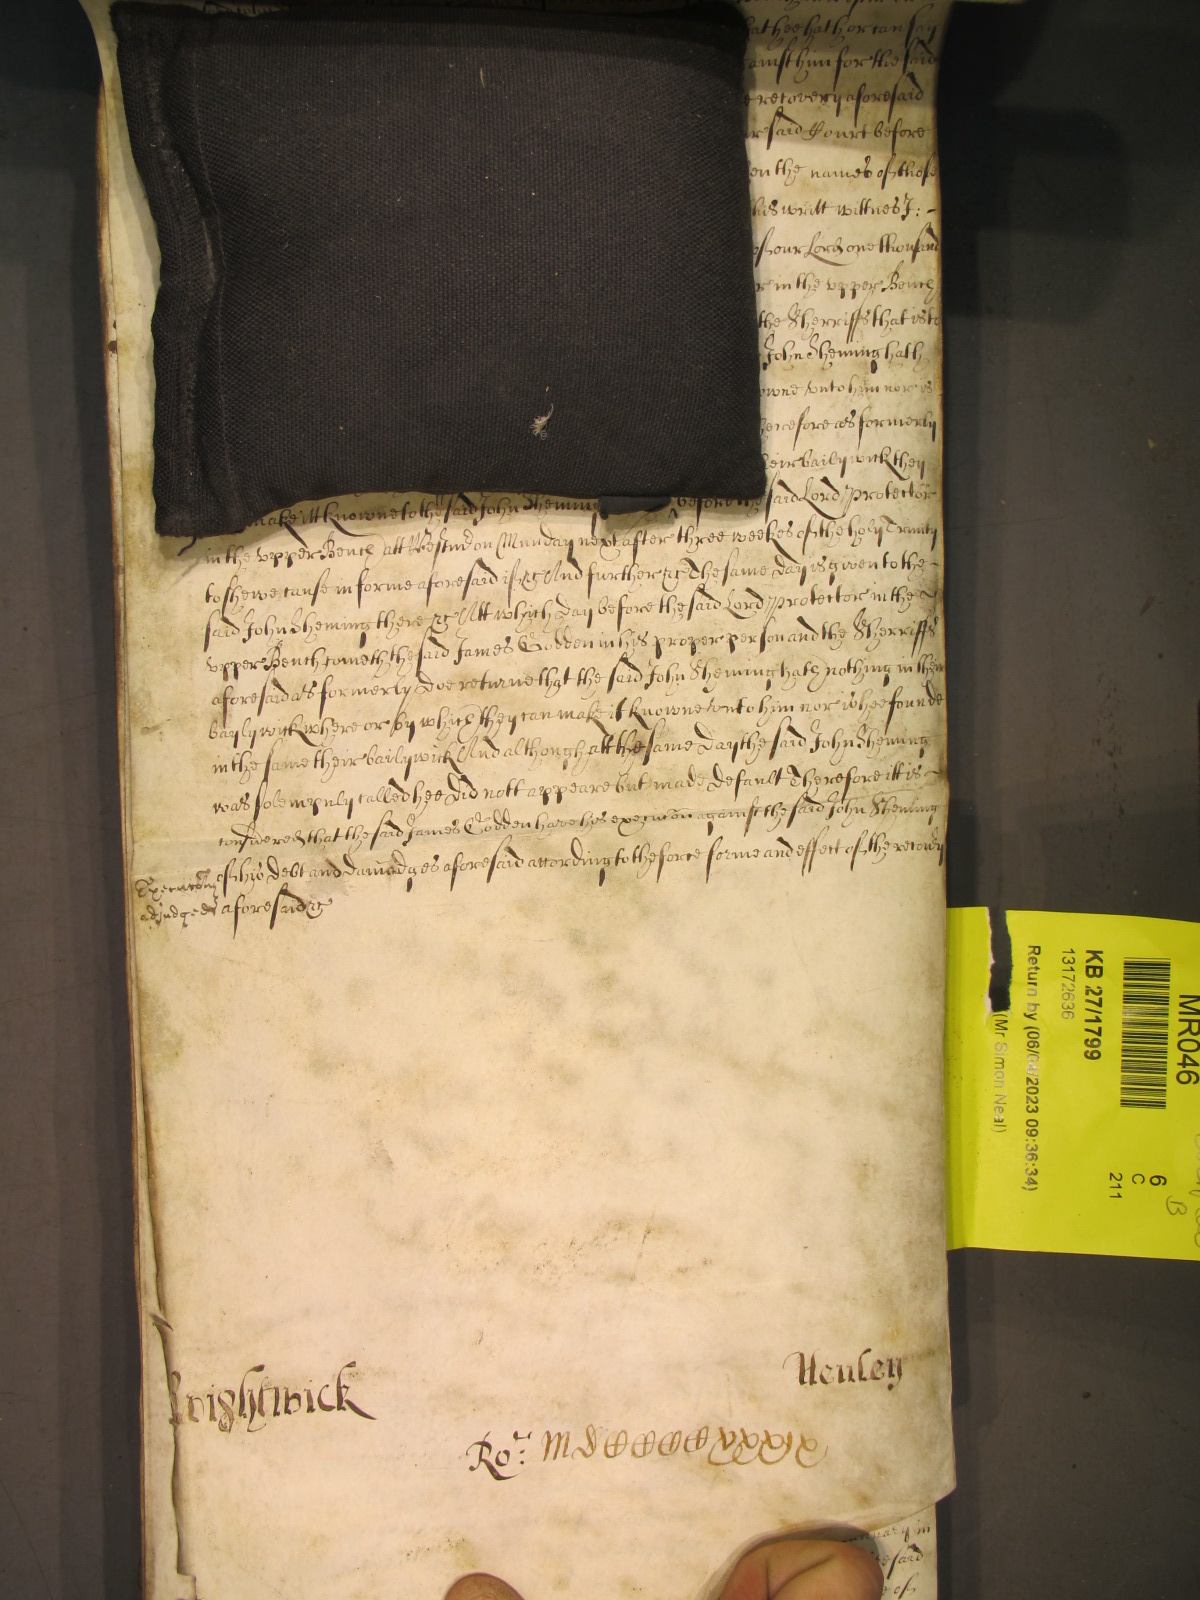 hat hee hath or can say
ainst him for the said
e recovery aforesaid
r said Court before
en the names of those
his writt wittnes J: -
of our Lord one thousand
r in the upper Bench
the Sherriffs that is to
John Sheming hath
owne unto him nor is
herefore as formerly
eir bailywick they
make itt knowne to the said John Sheming before the said Lord Protector
in the upper Bench att Westmr on Munday next after three weekes of the holy Trinity
to shewe cause in forme aforesaid if &c And further &c The same day is given to the
said John Sheming there &c Att which day before the said Lord Protector in the
upper Bench cometh the said James Codden in his proper person and the Sherriffs
aforesaid as formerly doe returne that the said John Sheming hath nothing in their
bayly wick where or by which they can make it knowne unto him nor is hee founde
in the same their bailywick And although att the same day the said John Sheming
was solempnly called hee did nott appeare but made default Therefore itt is
considered that the said James Codden have his execucon against the said John Sheming
of his debt and damadges aforesaid according to the force forme and effect of the recovery
Execucon
adjudged aforesaid &c
wightwick
Henley
Ro:
MR046
KB 27/1799
13172636
Return by (06/04/2023 09:36:34)
(Mr Simon Neal)
6
C
211
B
in
said
of